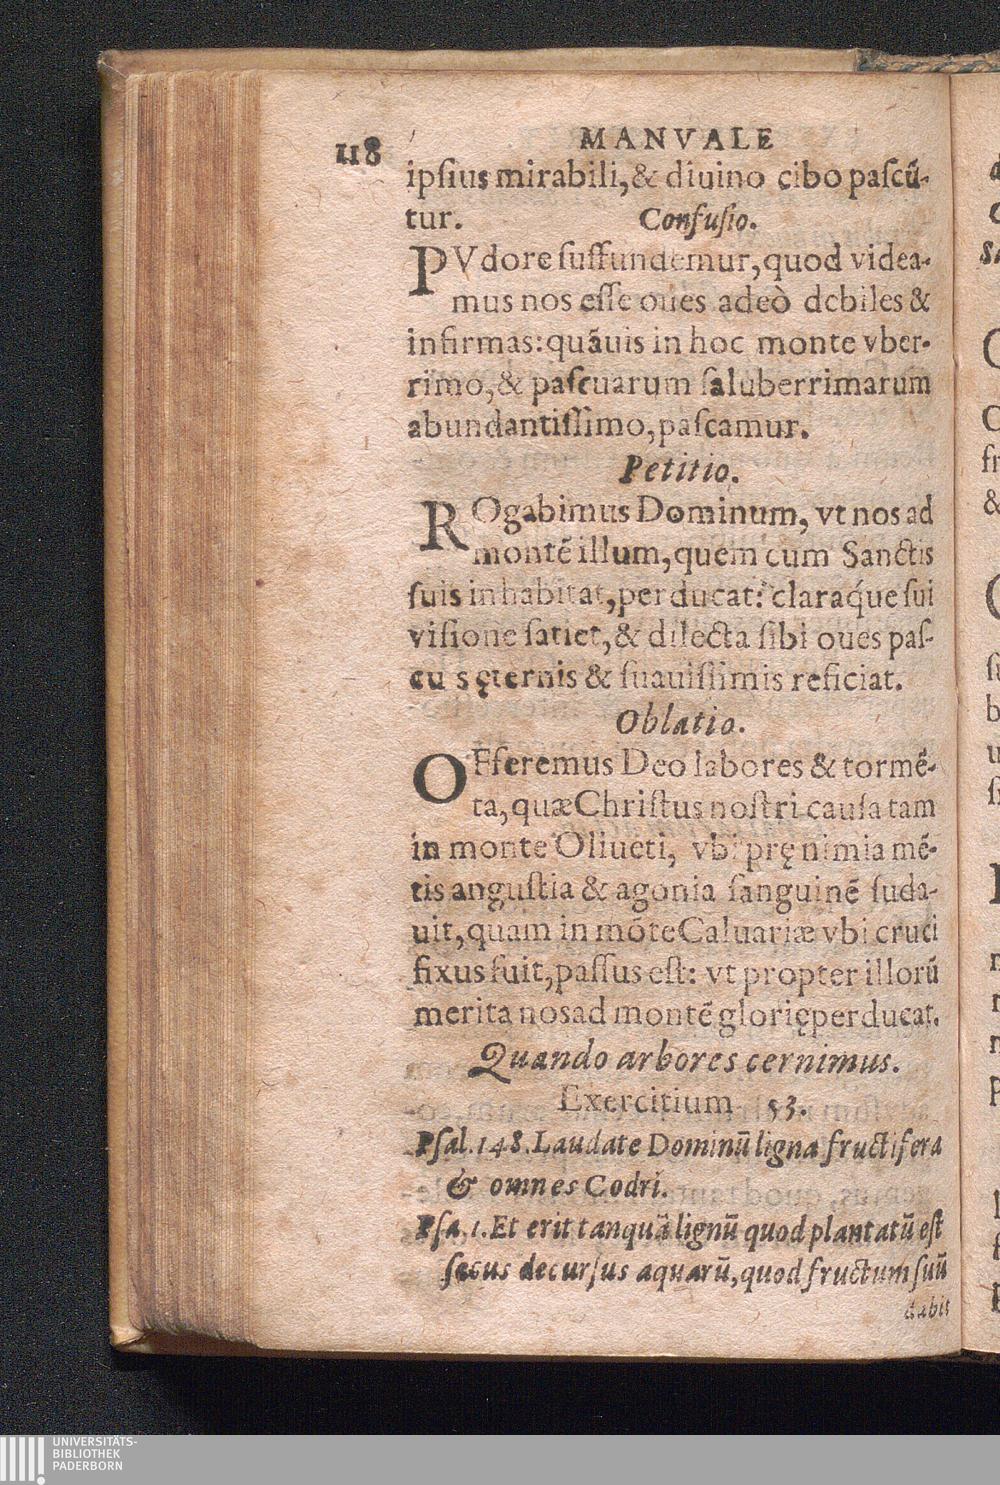 118 MANVALE
ipſius mirabili, & diuino cibo paſcū-
tur. Confuſio.
PVdore ſuffundemur, quod videa-
mus nos eſſe oues adeò debiles &
infirmas: quãuis in hoc monte vber-
rimo, & paſcuarum ſaluberrimarum
abundantiſſimo, paſcamur.
Petitio.
ROgabimus Dominum, vt nos ad
montē illum, quem cum Sanctis
ſuis inhabitat, perducat: claraq́ue ſui
viſione ſatiet, & dilecta ſibi oues paſ-
cuis ęternis & ſuauiſſimis reficiat.
Oblatio.
OFferemus Deo labores & tormē-
ta, quæ Chriſtus noſtri cauſa tam
in monte Oliueti, vbi prę nimia mē-
tis anguſtia & agonia ſanguinē ſuda-
uit, quam in mōte Caluariæ vbi cruci
fixus fuit, paſſus eſt: vt propter illorū
merita nos ad montē glorię perducat.
Quando arbores cernimus.
Exercitium 53.
Pſal. 148. Laudate Dominū ligna fructifera
& omnes Codri.
Pſa. 1. Et erit tanquā lignū quod plantatū eſt
ſecus decurſus aquarū, quod fructum ſuū
dabit
UNIVERSITÄTS-
BIBLIOTHEK
PADERBORN